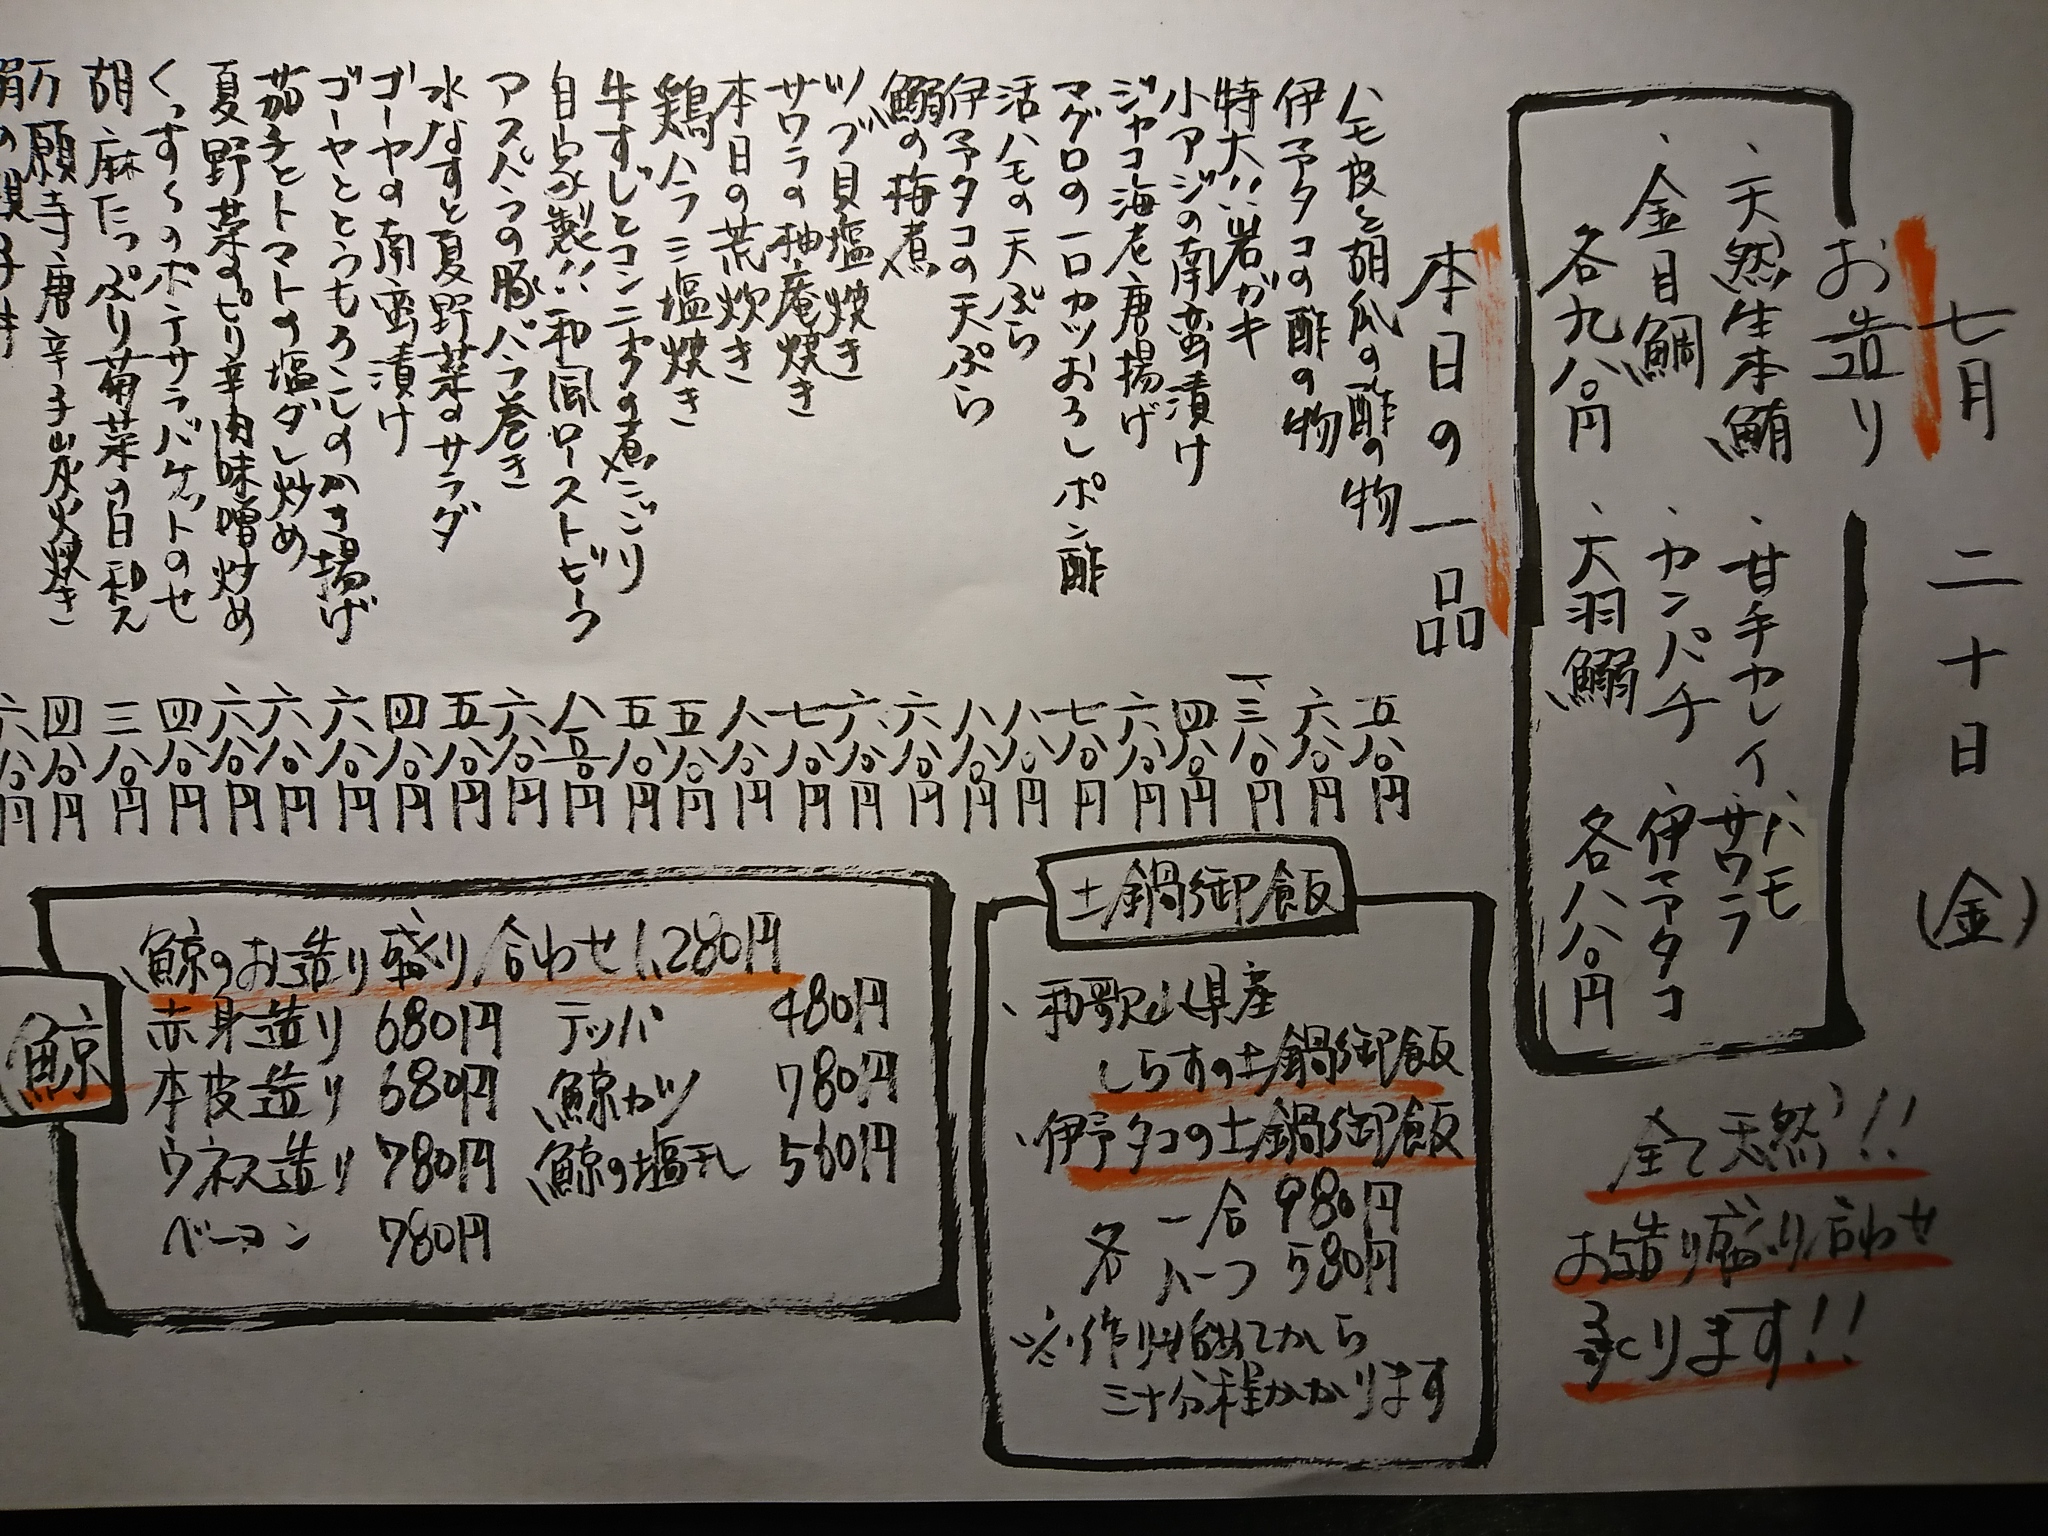 七月 二十日 (金)
お造り
、天然生本鮪 、甘手カレイ 、ハモ
、サワラ
、金目鯛 、カンパチ 、伊予タコ
各九八〇円 、大羽鰯 各八八〇円
全て天然!!
お造り盛り合わせ
承ります!!
本日の一品
ハモ皮と胡瓜の酢の物 五八〇円
伊予タコの酢の物 六八〇円
特大!!岩ガキ 一三八〇円
小アジの南蛮漬け 四八〇円
ジャコ海老唐揚げ 六八〇円
マグロの一口カツおろしポン酢 七八〇円
活ハモの天ぷら 八八〇円
伊予タコの天ぷら 八八〇円
鰯の梅煮 六八〇円
ツブ貝塩焼き 六八〇円
サワラの柚庵焼き 七八〇円
本日の荒炊き 八八〇円
鶏ハラミ塩焼き 五八〇円
牛すじとコンニャクの煮こごり 五八〇円
自家製!!和風ローストビーフ 八五〇円
アスパラの豚バラ巻き 六八〇円
水なすと夏野菜のサラダ 五八〇円
ゴーヤの南蛮漬け 四八〇円
ゴーヤととうもろこしのかき揚げ 六八〇円
茄子とトマトの塩ダレ炒め 六八〇円
夏野菜のピリ辛肉味噌炒め 六八〇円
くっすーのポテサラバケットのせ 四八〇円
胡麻たっぷり菊菜の白和え 三八〇円
万願寺唐辛子炭火焼き 四八〇円
六八〇円
土鍋御飯
、和歌山県産
しらすの土鍋御飯
、伊予タコの土鍋御飯
各 一合 980円
ハーフ 580円
※作り始めてから
三十分程かかります
鯨
鯨のお造り盛り合わせ 1,280円
赤身造り 680円 テッパ 480円
本皮造り 680円 鯨カツ 780円
ウネス造り 780円 鯨の塩干し 560円
ベーコン 780円